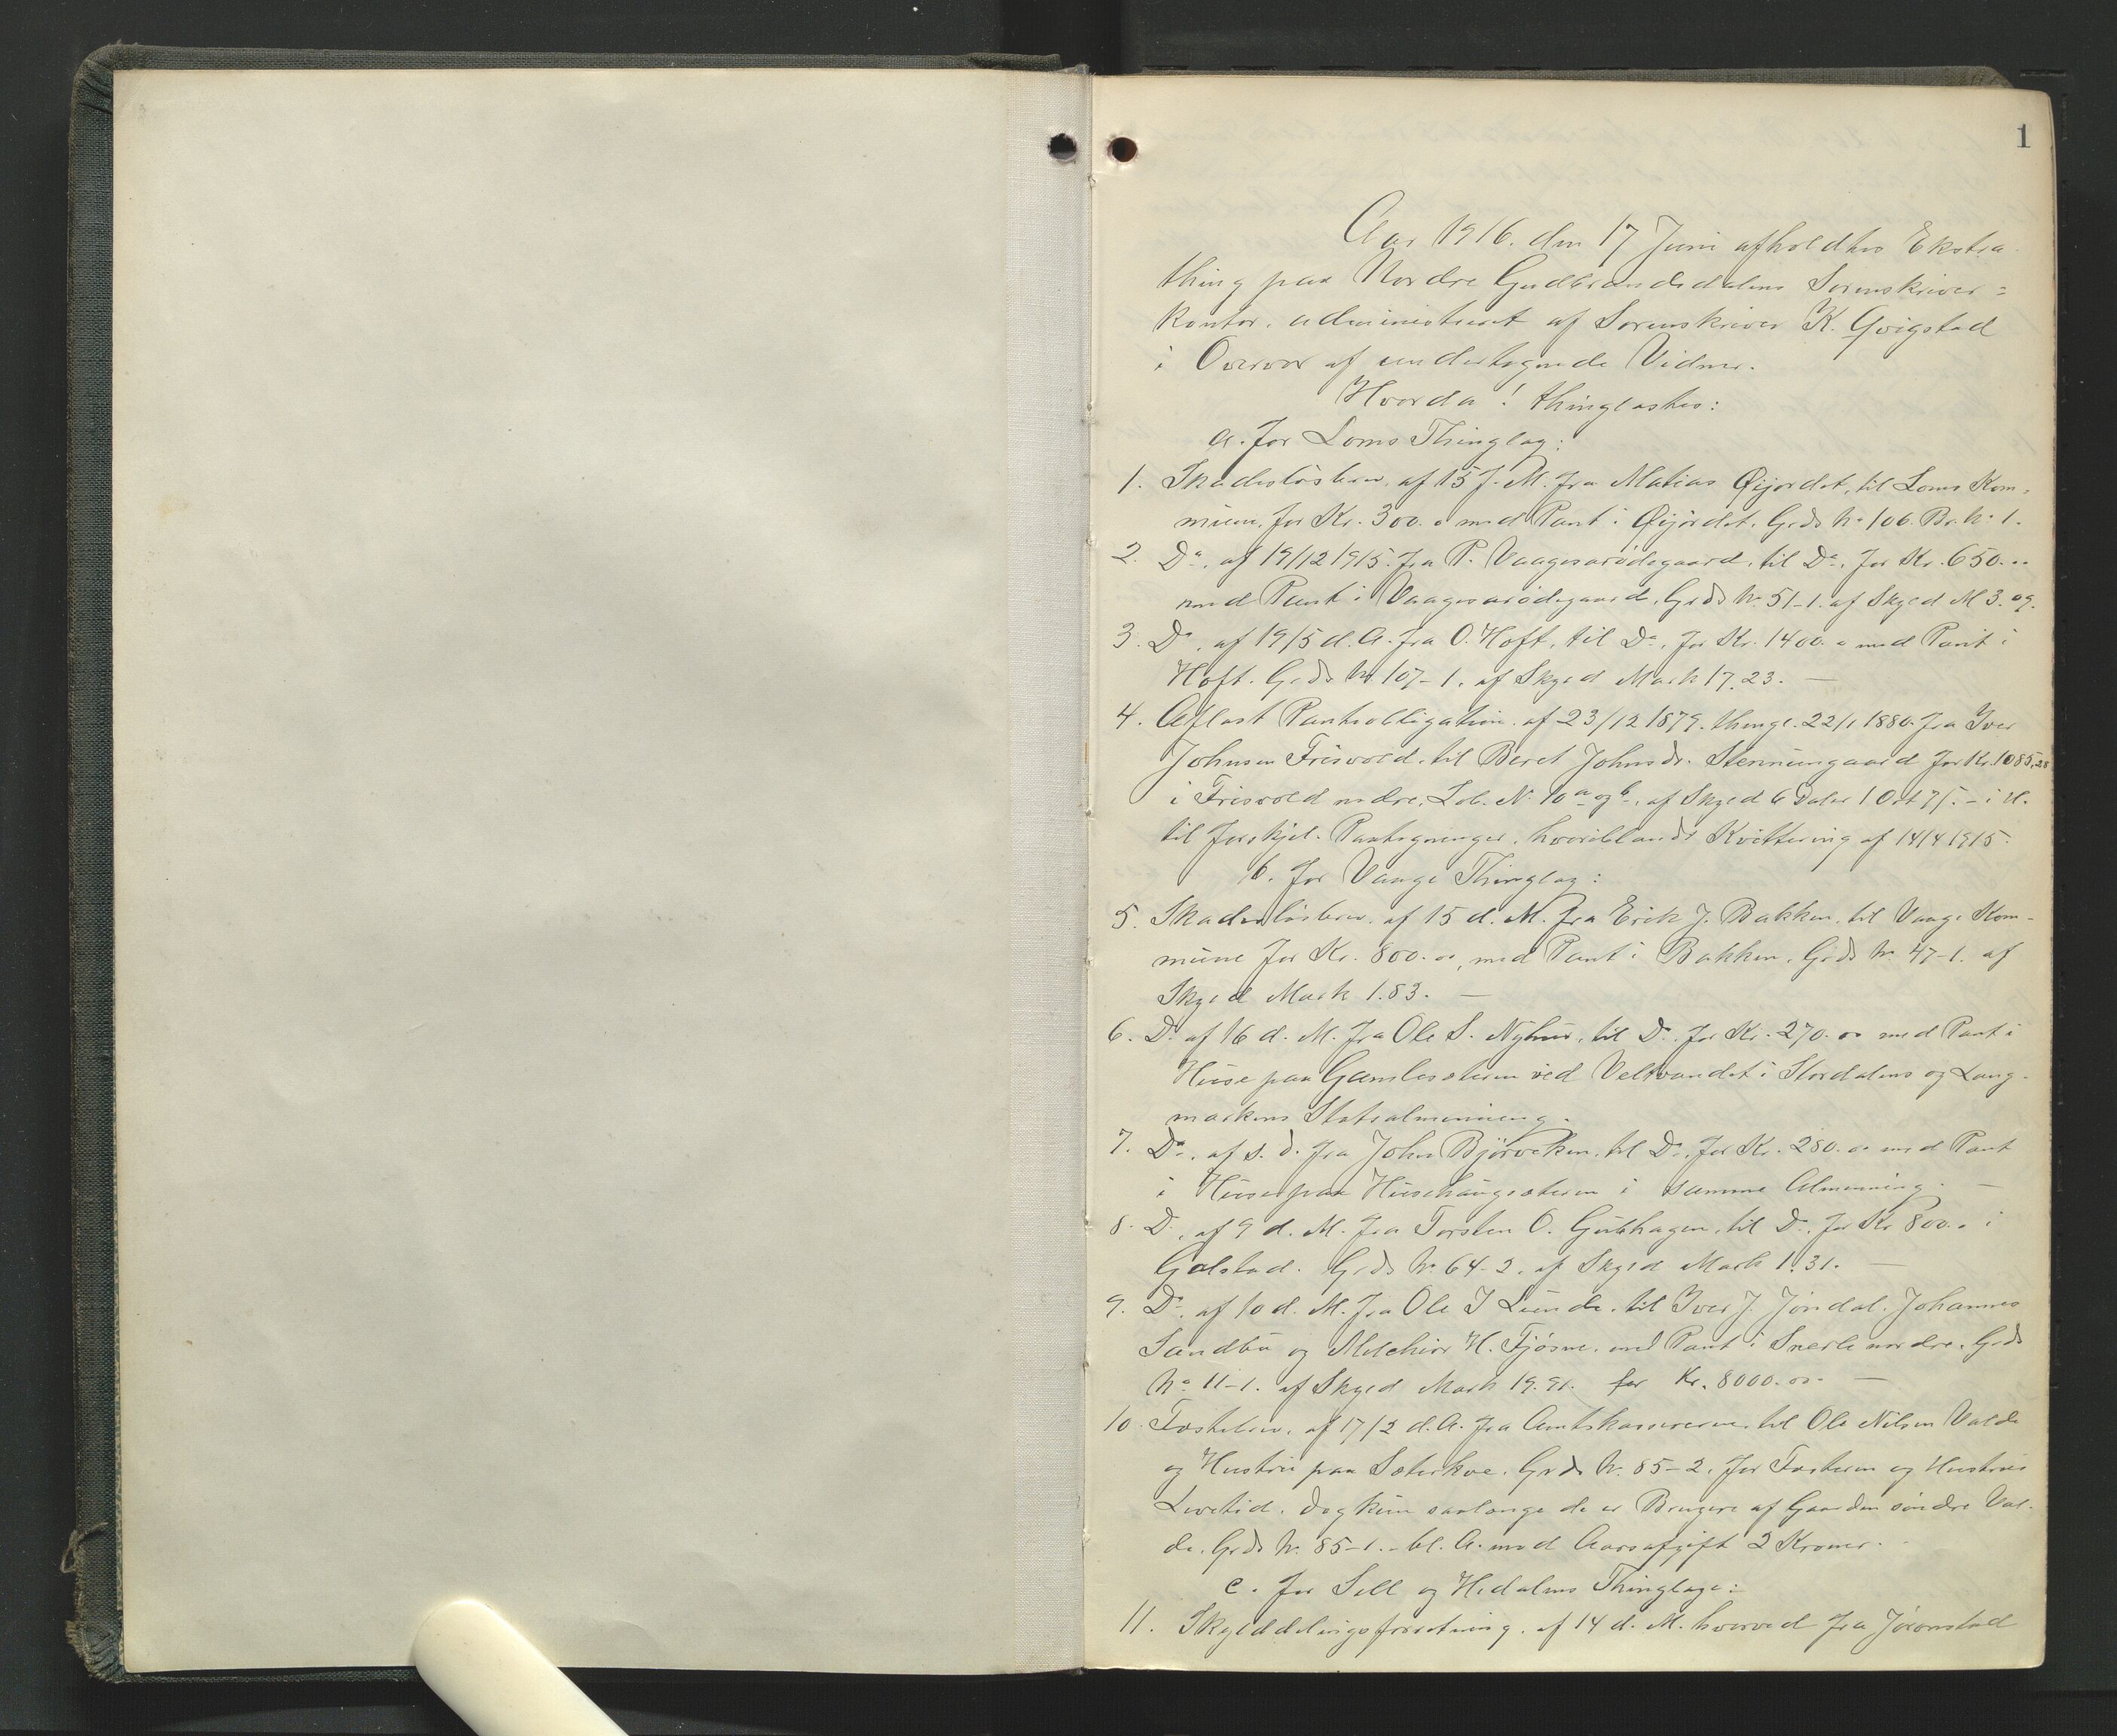 1
Aar 1916. den 17 Juni afholdtes Ekstra-
thing paa Nordre Gudbrandsdalens Sorenskriver=
kontor, administreret af Sorenskriver K. Qvigstad
i Overvær af undertegnede Vidner.
Hvorda! thinglæstes:
a. for Loms Thinglag:
1. Skadesløsbrev, af 15 f. M. fra Matias Øijordet, til Loms Kom-
mune, for Kr. 300.oo med Pant i Øijordet, Grds No 106. Br. No 1.
2. Do, af 19/12 1915. fra P. Vaagesarødegaard, til Do, for Kr. 650.oo
med Pant i Vaagesarødegaard, Grds No 51-1. af Skyld M 3.09.
3. Do, af 19/5 d. A. fra O. Hoft, til Do, for Kr. 1400.oo med Pant i
Hoft. Grds No 107-1, af Skyld Mark 17.23. —
4. Aflæst Pantobligation af 23/12 1879. thingl. 22/1 1880. fra Iver
Johnsen Frisvold, til Beret Johnsdr. Stenumgaard for Kr. 1085,28
i Frisvold nedre, Lb. No 10 a og b, af Skyld 6 Daler 1 Ort 7 s. - i H.
til forskjel. Pantegninger, hvoriblandt Kvittering af 14/4 1915.
b. for Vaage Thinglag:
5. Skadesløsbrev, af 15 d. M. fra Erik J. Bakken, til Vaage Kom-
mune for Kr. 800.oo, med Pant i Bakken, Grds No 47-1. af
Skyld Mark 1.83. —
6. Do af 16 d. M. fra Ole S. Nyhus, til Do, for Kr. 270.oo med Pant i
Huse paa Gamlesæteren ved Veltvandet i Stordalens og Lang-
markens Statsalmenning.
7. Do, af s. d. fra John Bjørveken, til Do, for Kr. 280.oo med Pant
i Huse paa Husehaugsæteren i samme Almenning. —
8. Do, af 9 d. M. fra Torsten O. Gulhagen, til Do, for Kr 800.oo i
Galstad. Grds No 64-2, af Skyld Mark 1.31. —
9. Do, af 10 d. M. fra Ole I Lunde, til Iver J. Jøndal, Johannes
Sandbu og Melchior H. Fjøsne, med Pant i Snerle nordre, Grds
No 11-1. af Skyld Mark 19.91. for Kr. 8000.oo. —
10. Fæstebrev, af 17/2 d. A. fra Amtskassereren, til Ole Nilsen Valde
og Hustru paa Sæterkve, Grds No 85-2, for Fæsteren og Hustrus
Levetid, dog kun saalænge de er Brugere af Gaarden søndre Val-
de, Grds No 85-1. - bl. A. mod Aarsafgift 2 Kroner. -
c. for Sell og Hedalens Thinglage:
11. Skylddelingsforretning, af 14 d. M. hvorved fra Jøronstad